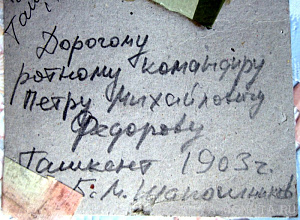 Таш
Дорогому
ротному командиру
Петру Михайловичу
Федорову
Ташкент 1903 г.
Б. М. Шапошников